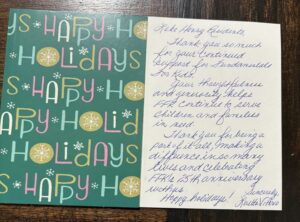 YS HAPPY HO
HOLIDAYS
HAPPY HO
HOLIDAYS
HAPPY HO
OLIDAYS
YS HAPPY HO
Lake Henry Residents,
Thank you so much
for your Continued
Support for Fundamentals
For Kids!
Your thoughtfulness
and generosity helps
FFK continue to serve
Children and families
in need.
Thank you for being a
part of it all, making a
difference in so many
lives and celebrating
FFK's 25th anniversary
with us.
Happy Holidays!
Sincerely,